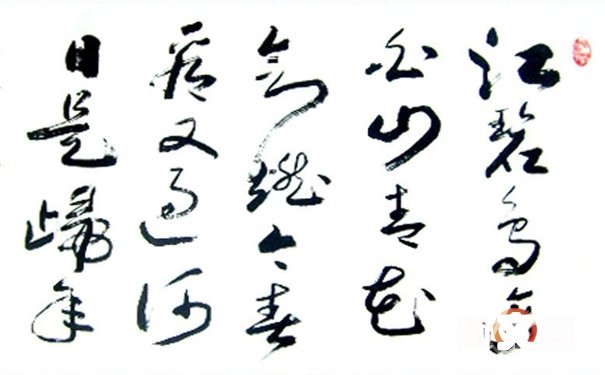 江碧鳥
白山青花
欲燃今春
看又過何
日是歸年